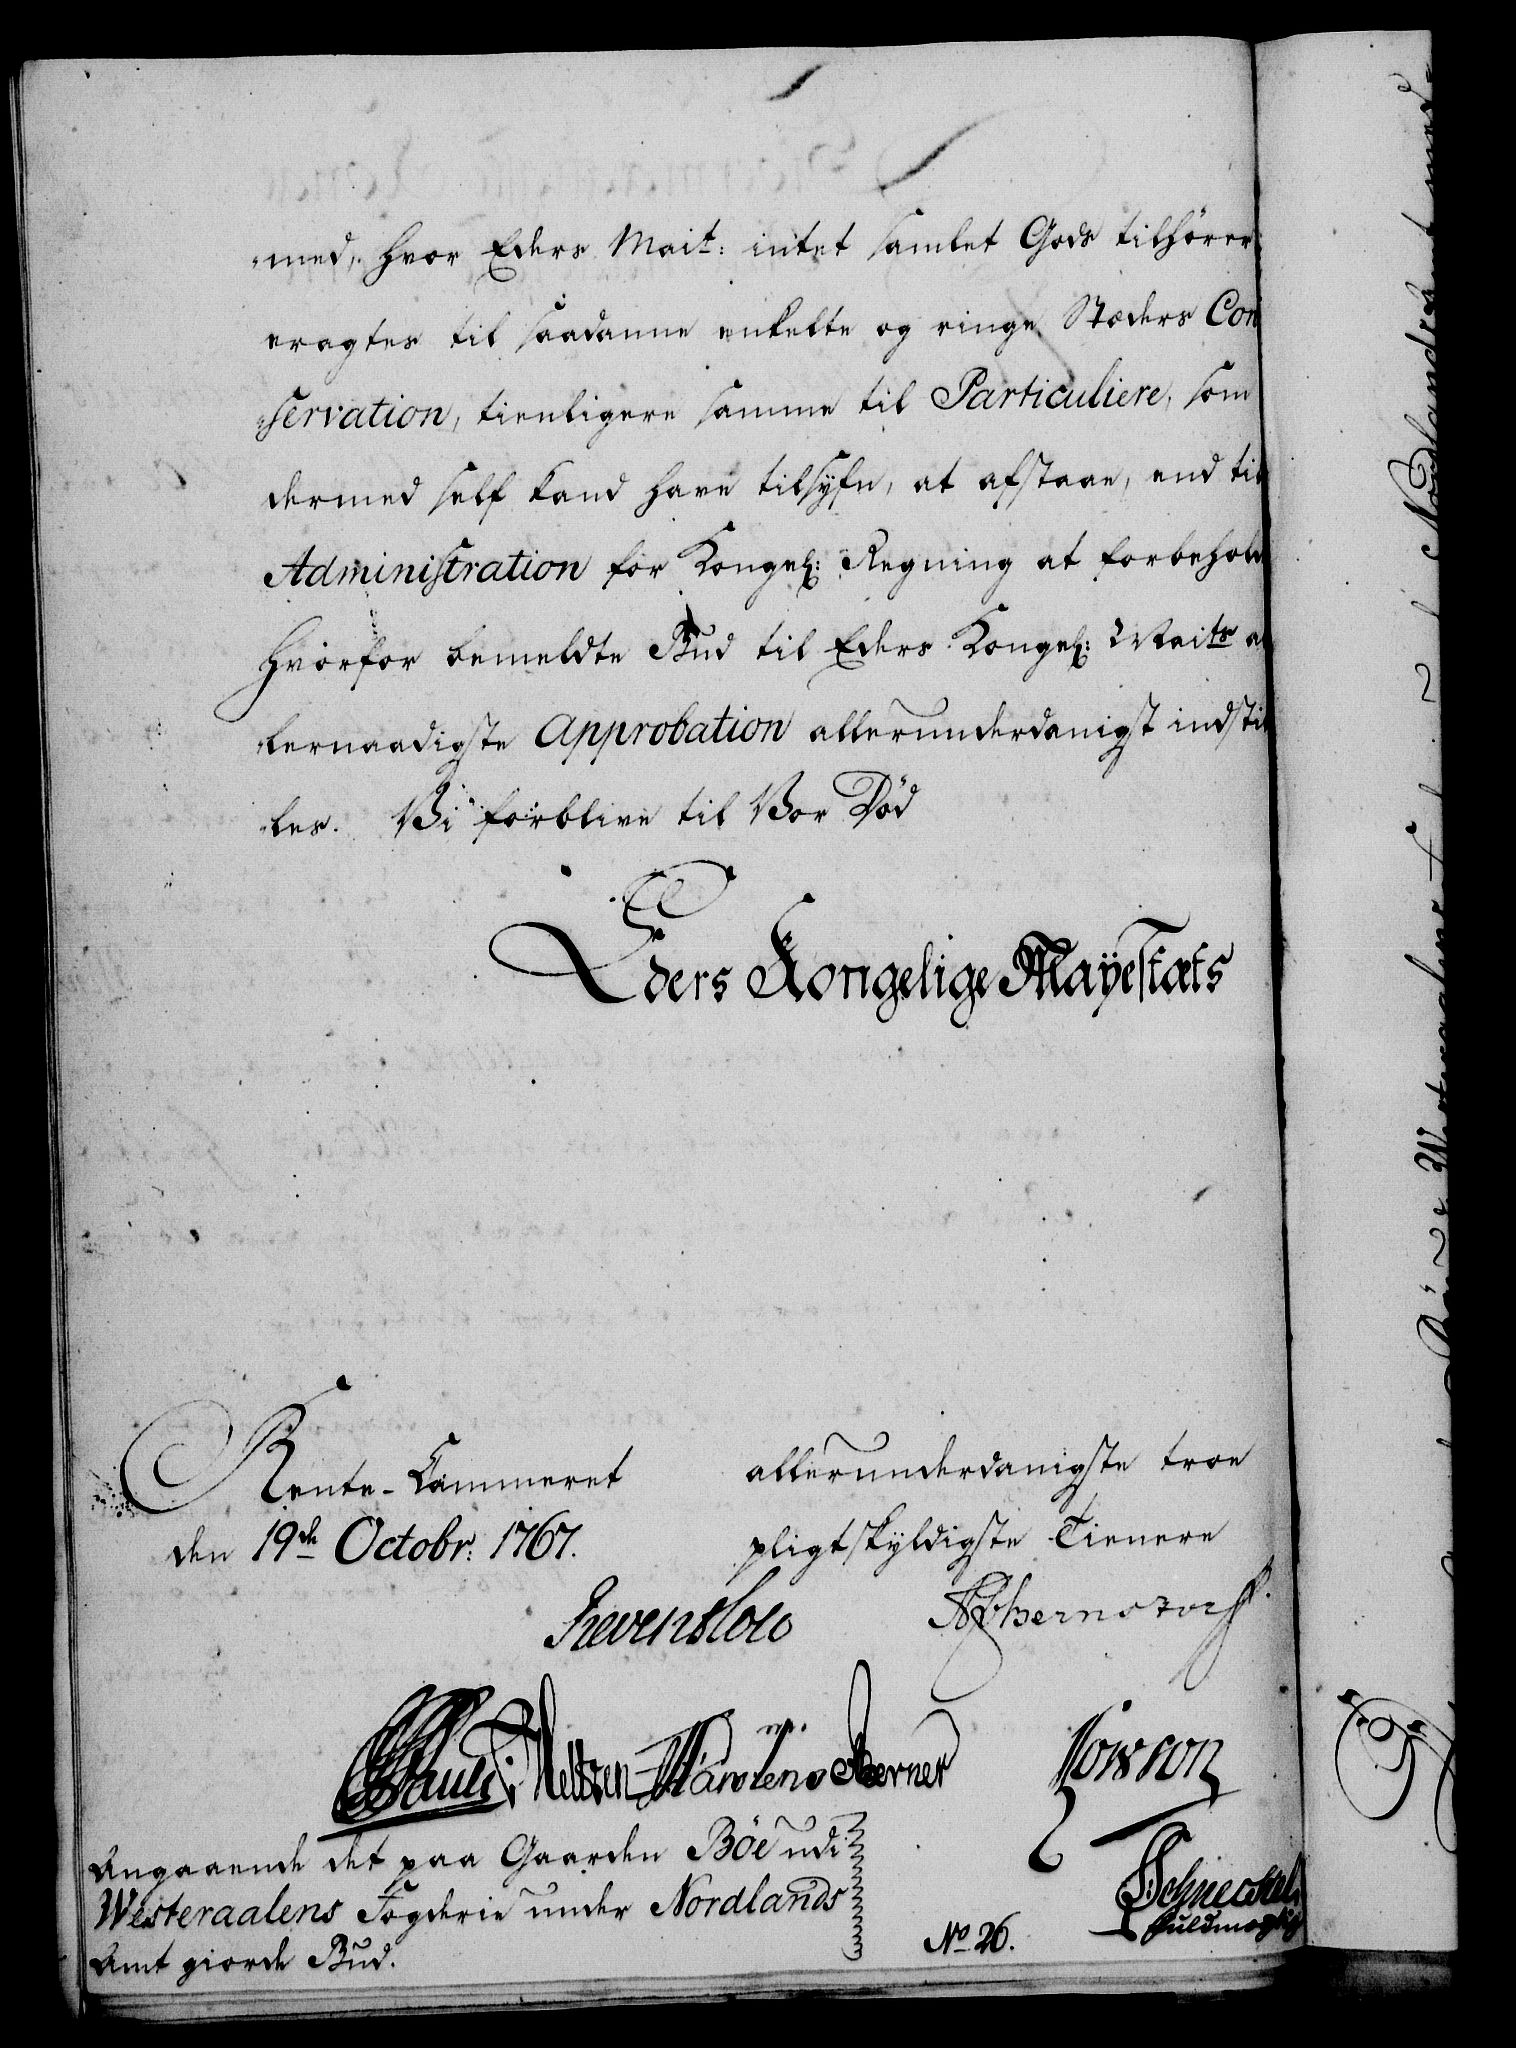 -med, hvor Eders Mait: intet samlet Gods tilhører
eragtes til saadanne enkelte og ringe Stæders Con
-servation, tienligere samme til Particuliere, som
dermed self kand have tilsyfn, at afstaae, end til
Administration for Kongel: Regning at forbehold
Hvorfor bemeldte Bud til Eders Kongel: Maits al
-lernaadigste Approbation allerunderdanigst indstil
-les. Vi forblive til Vor Død
Eders Kongelige Mayestæts
Rente-Cammeret
den 19de Octobr: 1767.
allerunderdanigste troe
pligtskyldigste Tienere
Reventlow
Bernstorff.
Pauli Neltzen Martens Berner
Schneckel
fuldmægtig
Angaaende det paa Gaarden Böe udi
Westeraalens Fogderie under Nordlands
Amt giorde Bud.
No. 26.